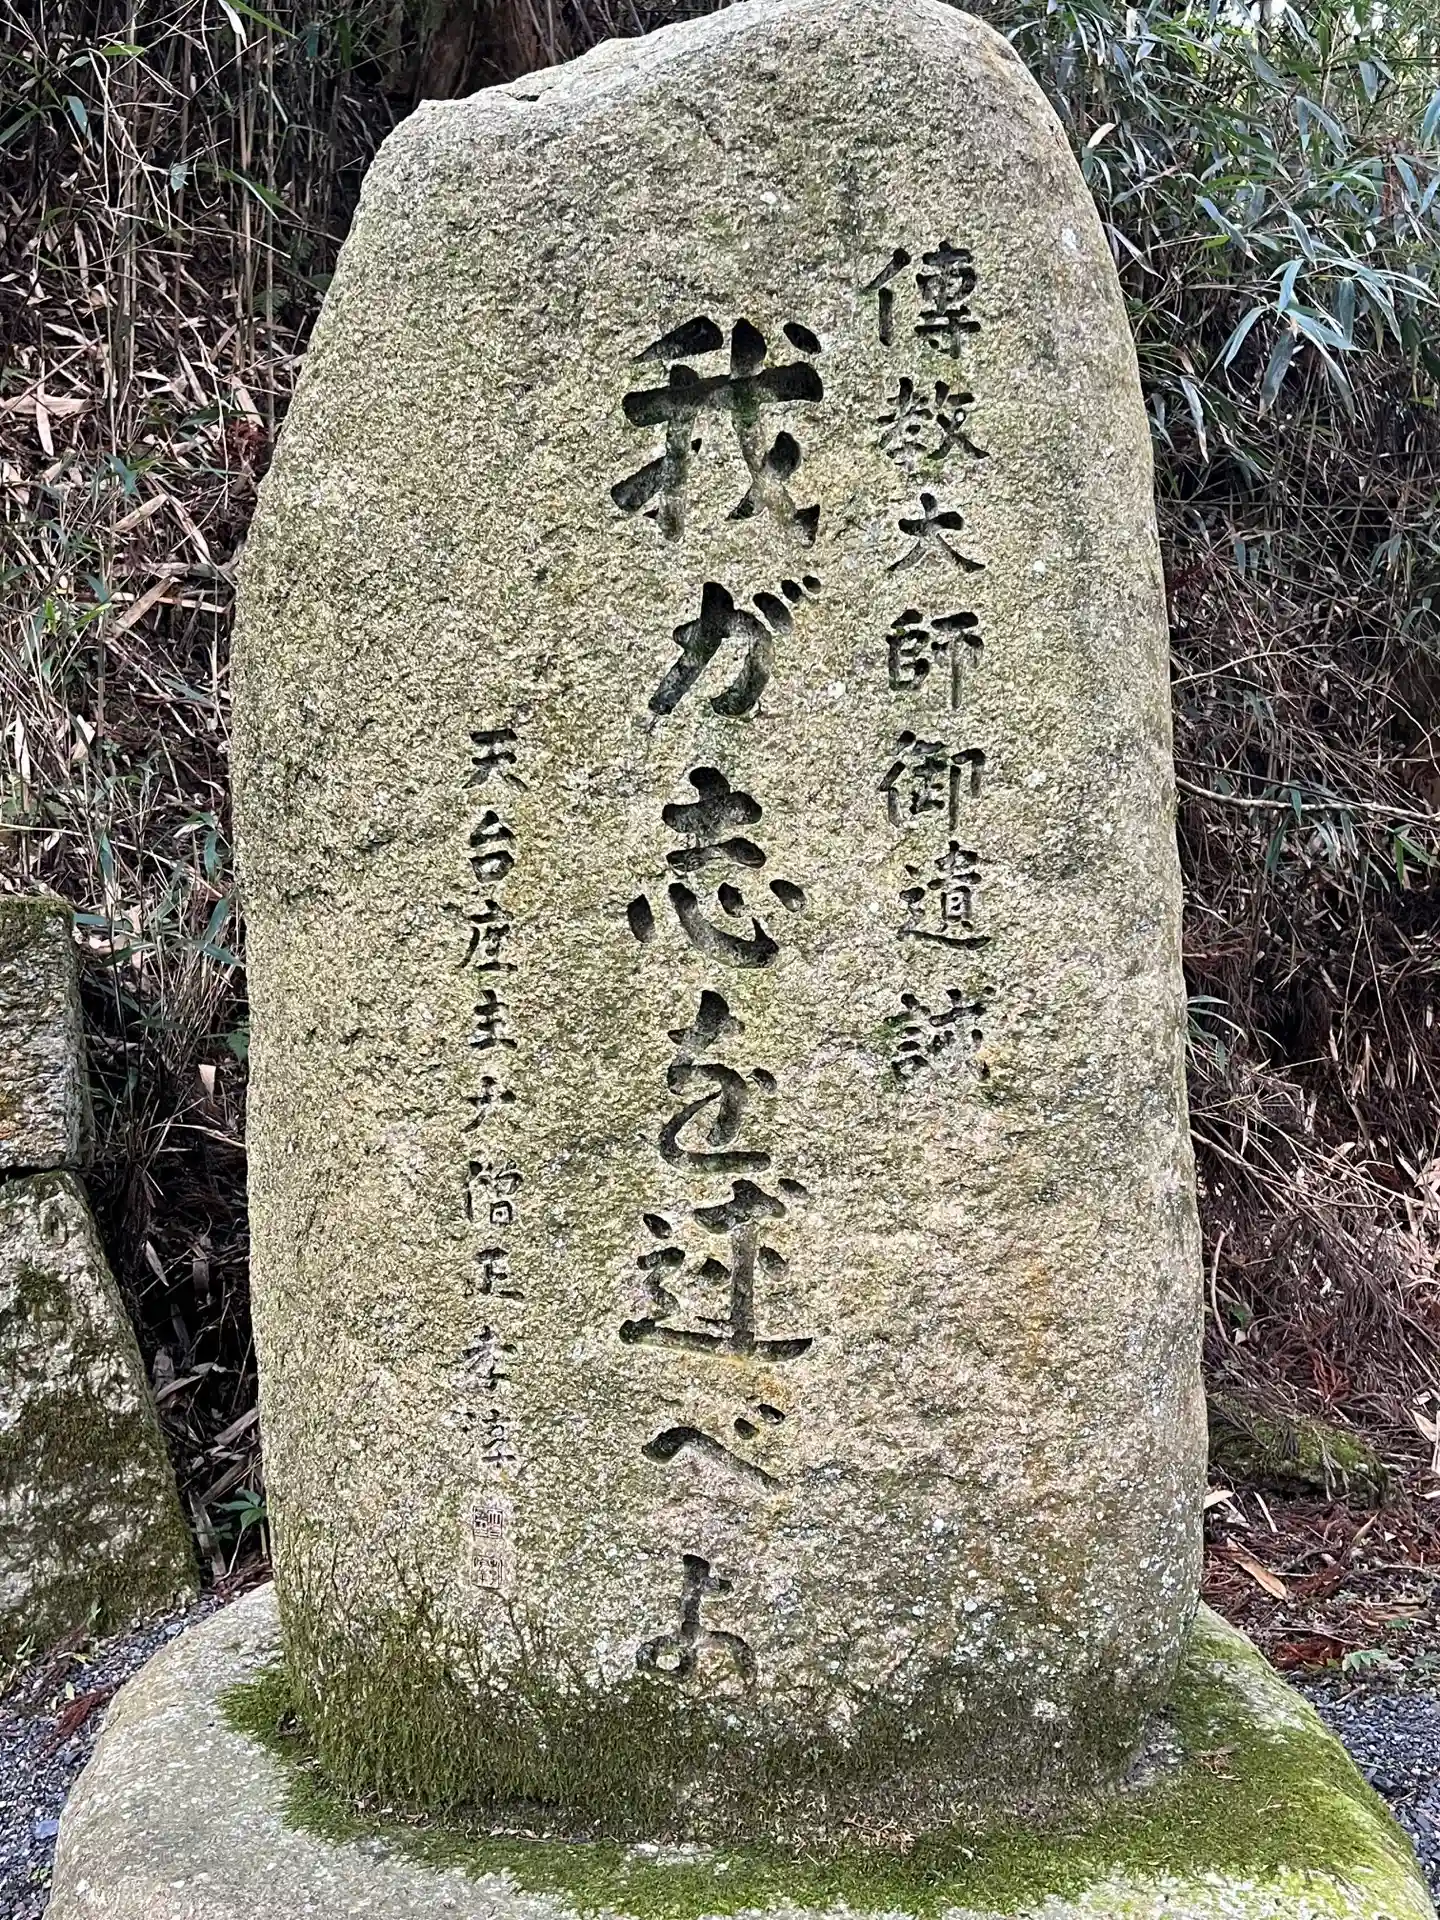 傳教大師御遺誡
我が志を述べよ
天台座主大僧正孝淳